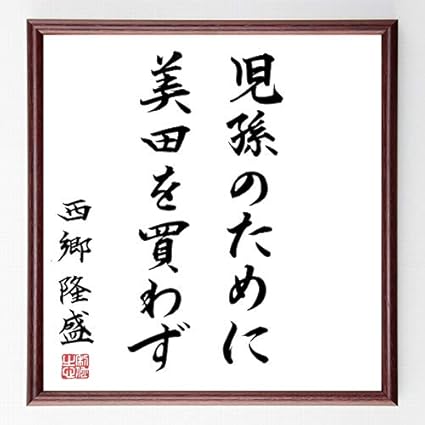 児孫のために
美田を買わず
西郷隆盛